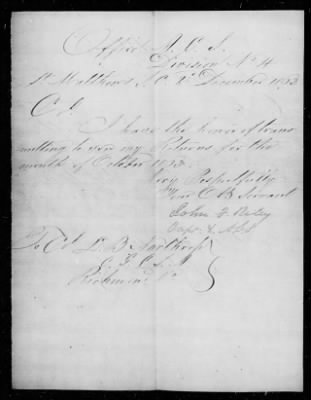 Office A. C. S.
Division No 4
St Matthews S. C. December 1863
Col.
I have the honor of trans
mitting to you my Returns for the
month of October 1863.
Very Respectfully
Your Ob Servant
John
Capt & A.C.S
To Col L. B Northrop
C. G. C. S. A
Richmond Va